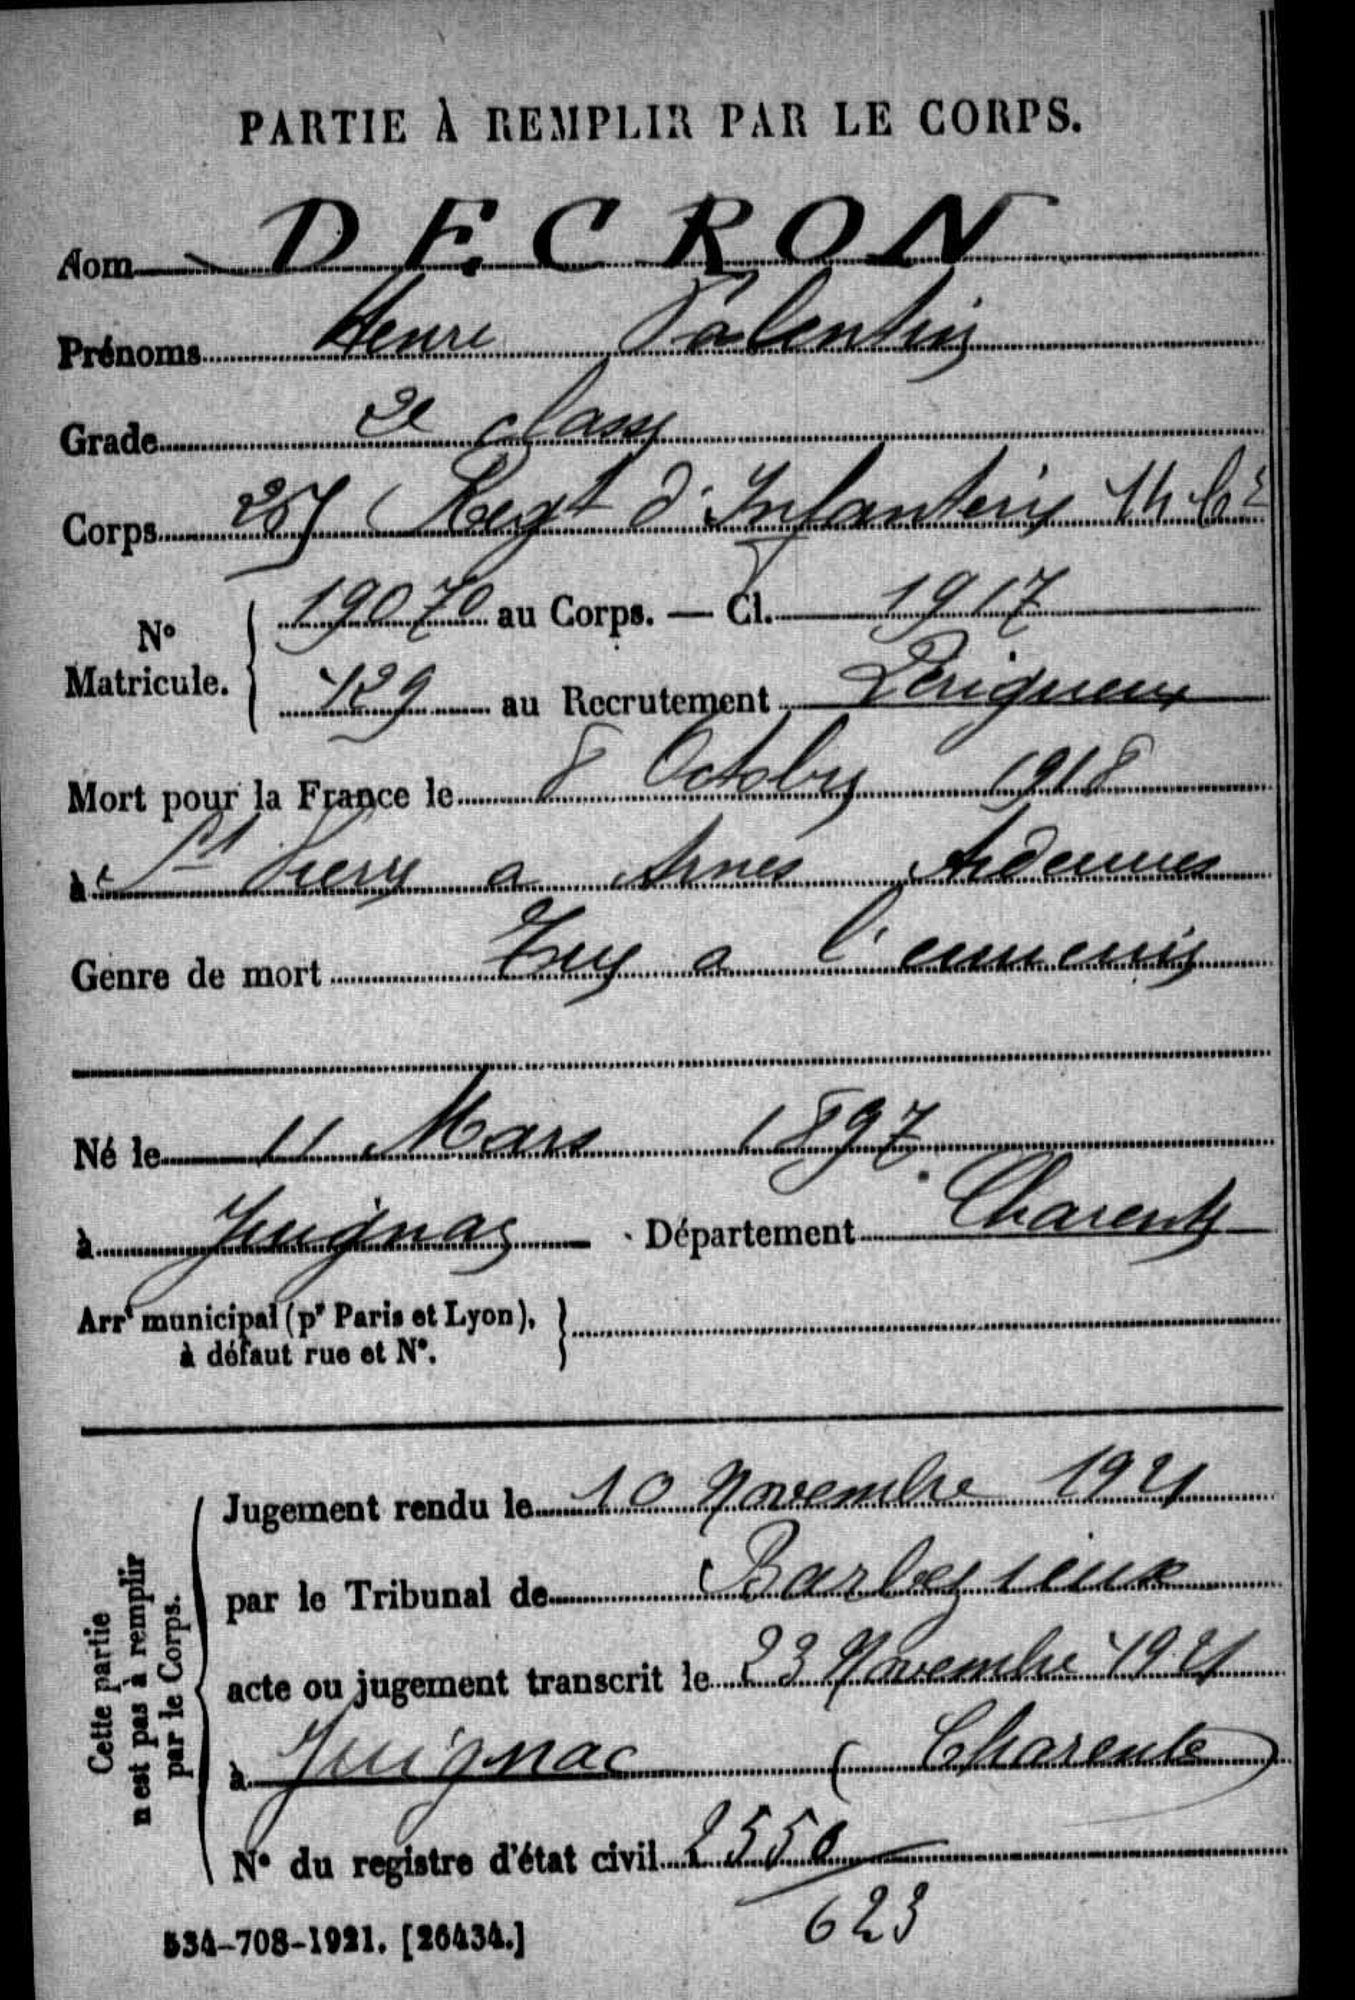 PARTIE À REMPLIR PAR LE CORPS.
Nom DECRON
Prénoms Henri Valentin
Grade 2e classe
Corps 257 Regt d'Infanterie 14 Cie
N° Matricule. 19070 au Corps. — Cl. 1917
429 au Recrutement Périgueux
Mort pour la France le 8 Octobre 1918
à St Pierre a Arnes Ardennes
Genre de mort Tué a l'ennemi
Né le 11 Mars 1897.
à Juignac Département Charente
Arrt municipal (pr Paris et Lyon),
à défaut rue et N°.
Cette partie
n'est pas à remplir
par le Corps.
Jugement rendu le 10 Novembre 1921
par le Tribunal de Barbezieux
acte ou jugement transcrit le 23 Novembre 1921
à Juignac (Charente)
N° du registre d'état civil 2550
623
534-708-1921. [26434.]